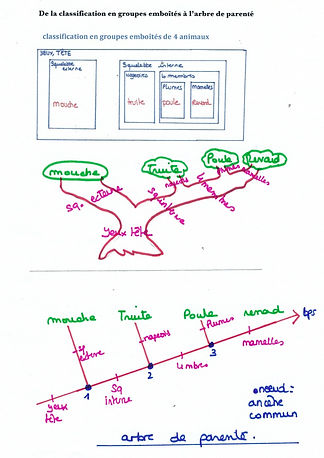 De la classification en groupes emboîtés à l'arbre de parenté
classification en groupes emboités de 4 animaux
YEUX, TÊTE
Squelette externe
mouche
Squelette Interne
Nageoires
truite
4 membres
Plumes
poule
Mamelles
Renard
mouche
Truite
Poule
Renard
sq. externe
nageoires
plumes
mamelles
4 membres
sq interne
Yeux tête
mouche
Truite
Poule
renard
tps
sq externe
nageoires
Plumes
mamelles
4 mbres
1
2
3
Sq interne
yeux tête
noeud :
ancêtre
commun
arbre de parenté.